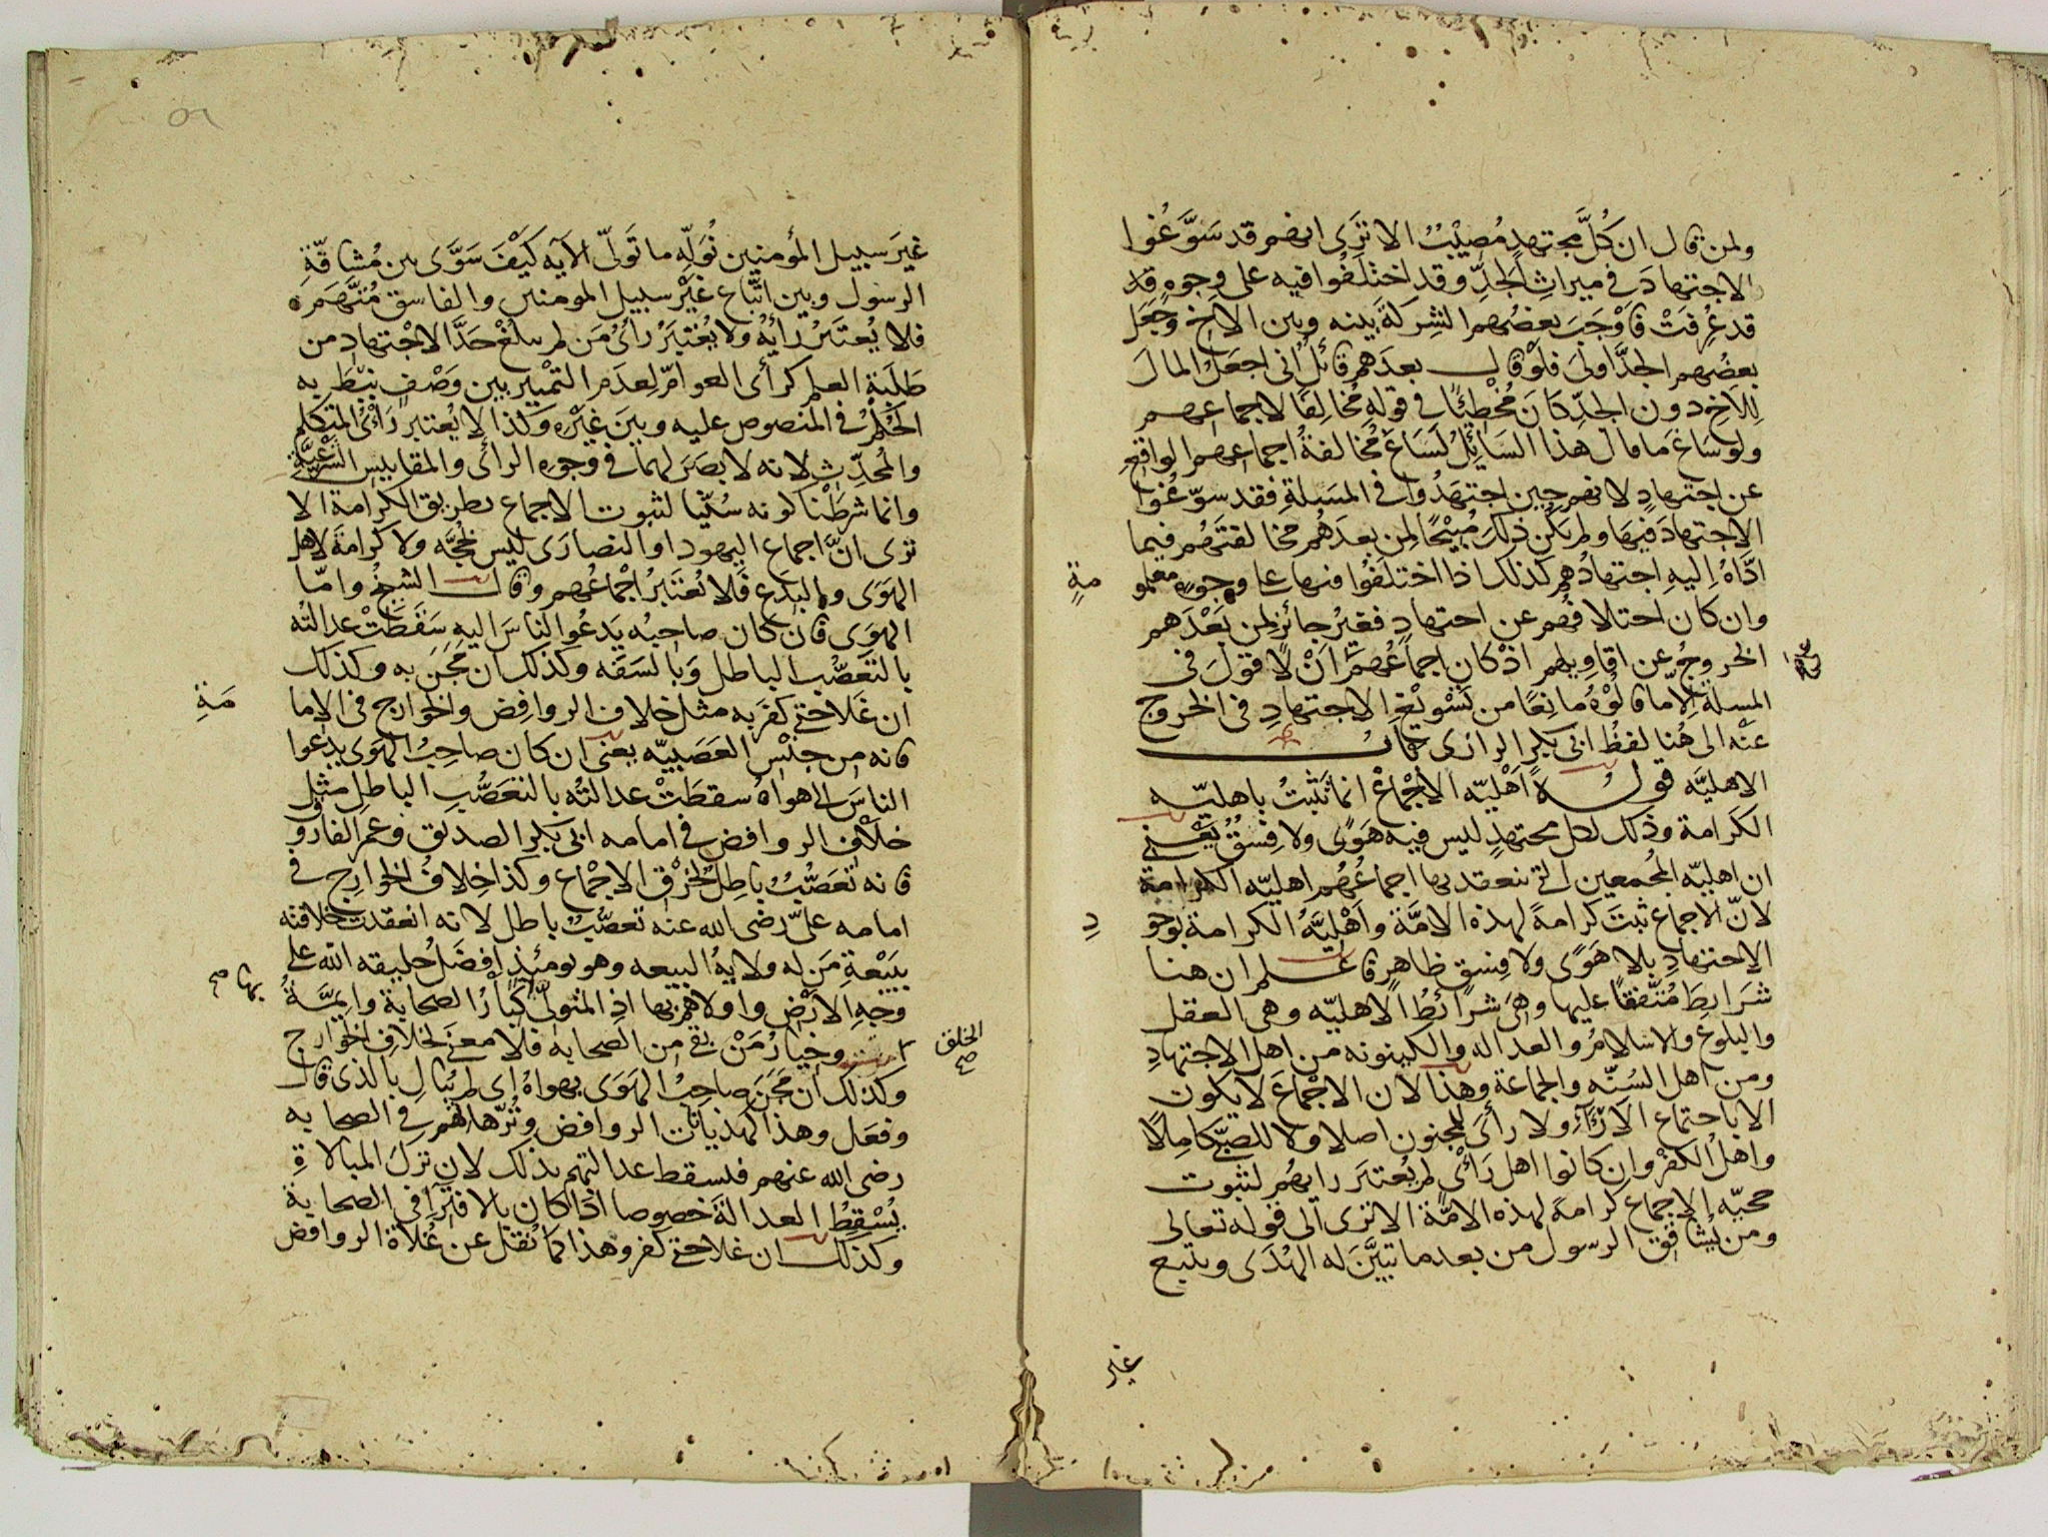 ولمن قال ان كُلَّ مجتهدٍ مُصِيْبٌ الا ترَى انهم قد سَوَّغُوا
الاجتهادَ في ميراثِ الجَدِّ وقد اختلفُوا فيه على وجوهٍ قد
قد عُرِفَتْ فَاَوْجَبَ بعضُهم الشِركَةَ بينه وبين الاخِ وجَعَل
بعضُهم الجدَّ اولىَ فلو قال بعدَهم قائلٌ انى اجعَلُ المالَ
لِلاَخِ دون الجدِّ كانَ مُخْطِئًا في قولهِ مُخالِفًا لاجماعهم
ولو ساغَ ما قال هذا السَائِلُ لَسَاغَ مُخالفةُ اجماعهم الواقعِ
عن اجتهادٍ لانهم حِين اجتهَدُوا في المسَلةِ فقد سوّغُوا
الاجتهادَ فيهَا ولم يكن ذلكَ مُبِيْحًا لِمن بعدَهُم مخالفتَهُم فيما
ادَّاهُ اِليهِ اجتهادُهم كذلك اذا اختلفُوا فيها على وجوهٍ معلو
مةٍ
وان كان اختلافُهم عن اجتهادٍ فغيرُ جائزٍ لِمن بَعْدَهم
الخروجُ عن اقاويلهم اذ كان اجماعُهم اَنْ لا قولَ فى
المسلة اِلاّ ما قالُوْهُ مانِعًا من تَسْوِيْغِ الاجتهادِ فى الخروج
عنْه الى هُنا لفظُ ابى بكرٍ الرازى باب
الاهليَّه قوله اَهْليّه الاِجْماع انما تَثْبتُ باهليّه
الكَرامة وذلك لكل مجتهدٍ ليس فيه هَوًى ولا فِسْقٌ يَعْنِي
ان اهليّه المُجمعين التى ينعقد بها اجماعُهُم اهليّه الكرامة
لانّ الاجماع ثبتَ كرامةً لهذه الامَّة واَهْليَّهُ الكرامة بوجو
دِ
الاجتهادِ بلا هَوًى ولا فِسقٍ ظاهرٍ فاعلم ان هنا
شرَايطَ مُتَّفقًا عليها وهىَ شرائطُ الاهليّه وهى العقل
والبلوغ والاسلامُ والعدالة والكينونه من اهل الاجتهادِ
ومن اهل السُنّه والجماعة وهذا لان الاجْماعَ لا يكون
الا باجتماعِ الآرَآءِ ولا رأىَ للمجنون اصلا ولا للصبىّ كامِلاً
واهلُ الكفْرِ وان كانوا اهل رَأْىٍ لم يُعتبَر رايهُم لثبوت
حجيّه الاجماع كرامةً لهذه الامَّة الا ترى الى قوله تعالى
ومن يُشاقِقِ الرسول من بعد ما تبيَّنَ له الهُدَى ويتبع
غير
غيرَ سبيل المؤمنين نُوَلِّه ما تَولّى الآيه كيْفَ سَوَّى بين مُشاقّةِ
الرسول وبين اتّباع غَيْر سبيل المومنين والفاسق مُتَّهَم
فلا يُعتَبرُ رأيُهُ ولا يُعْتبَرُ رأىُ مَن لم يبلُغْ حَدَّ الاجْتهادِ من
طَلَبَةِ العِلم كرأى العوامّ لِعدَمِ التمْييز بين وَصْفٍ نيْطَ به
الحُكْمُ في المنصوص عليه وبينَ غيْرِه وَكذا لا يُعتبر رَأْىُ المتكلم
والمُحدِّثِ لانه لا بصَرَ لهما في وجوه الرأى والمقاييس الشرْعيَّةِ
وانما شرَطْنا كونه سُنّيّا لثبوت الاجماع بطريق الكرامة الا
ترى انَّ اجماع اليهود او النصارَى ليس بحُجَّه ولا كرامةَ لاهل
الهَوَى والبِدَع فَلا يُعتَبَرُ اجْماعُهم وقال الشيخُ وامّا
الهوَى فان كان صاحبُه يَدعُوا الناسَ اليه سَقَطتْ عدالتُه
بالتعَصُّبِ الباطل وَبالسَفَه وكذلك ان مَجَن به وكذلك
ان غَلا حتى كفَر به مثل خلاف الروافِض والخوارج في الاِما
مَةِ
فانه من جنْسِ العَصَبيّه يعنى ان كان صاحِبُ الهوَى يدعوا
الناسَ الى هواه سقطَتْ عدالتُه بالتعَصُّبِ الباطلِ مثل
خلافِ الروافض في امامه ابى بكرٍ الصديق وعمر الفاروق
فانه تعَصُّبٌ باطِلٌ لخرْقِ الاجْماع وكذا خِلافُ الخوارِج في
امامه علىّ رضى الله عنه تعصُّبٌ باطل لانه انعقدت خلافتُه
ببَيْعةِ مَن له ولايهُ البيعه وهو يومئذٍ افضَلُ خليقه الله على
وجهِ الارْض واولاهم بها اذِ المتولّى كبارُ الصحابة وايمَّةُ
بها صح
الخلق صح
وخيارُ مَنْ بقى من الصحابه فلا معنَى لخلافِ الخوارج
وكذلك ان مَجَنَ صاحِبُ الهَوَى بهواهُ اى لم يُبالِ بالذى قال
وفعَل وهذا كهذيانات الروافض وتُرّهاتهم في الصحابه
رضى الله عنهم فيسقط عدالتهم بذلك لان ترْكَ المبالاةِ
يُسْقِطُ العدالة خصوصا اذا كان بالافترآ فى الصحابة
وكذلك ان غلا حتى كفر وهذا كما نُقل عن غُلاة الروافض